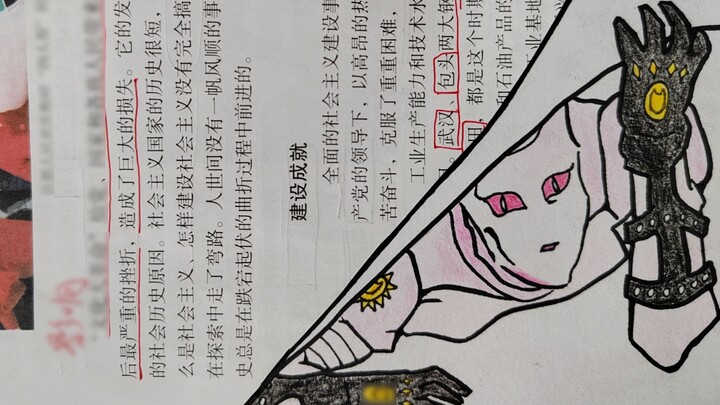 影响
后最严重的挫折，造成了巨大的损失。它的发
的社会历史原因。社会主义国家的历史很短，
么是社会主义、怎样建设社会主义没有完全搞
在探索中走了弯路。人世间没有一帆风顺的事
史总是在跌宕起伏的曲折过程中前进的。
建设成就
全面的社会主义建设事
产党的领导下，以高昂的热
苦奋斗，克服了重重困难，
工业生产能力和技术水
。武汉、包头两大钢
田，都是这个时期
和石油产品的
工业基地